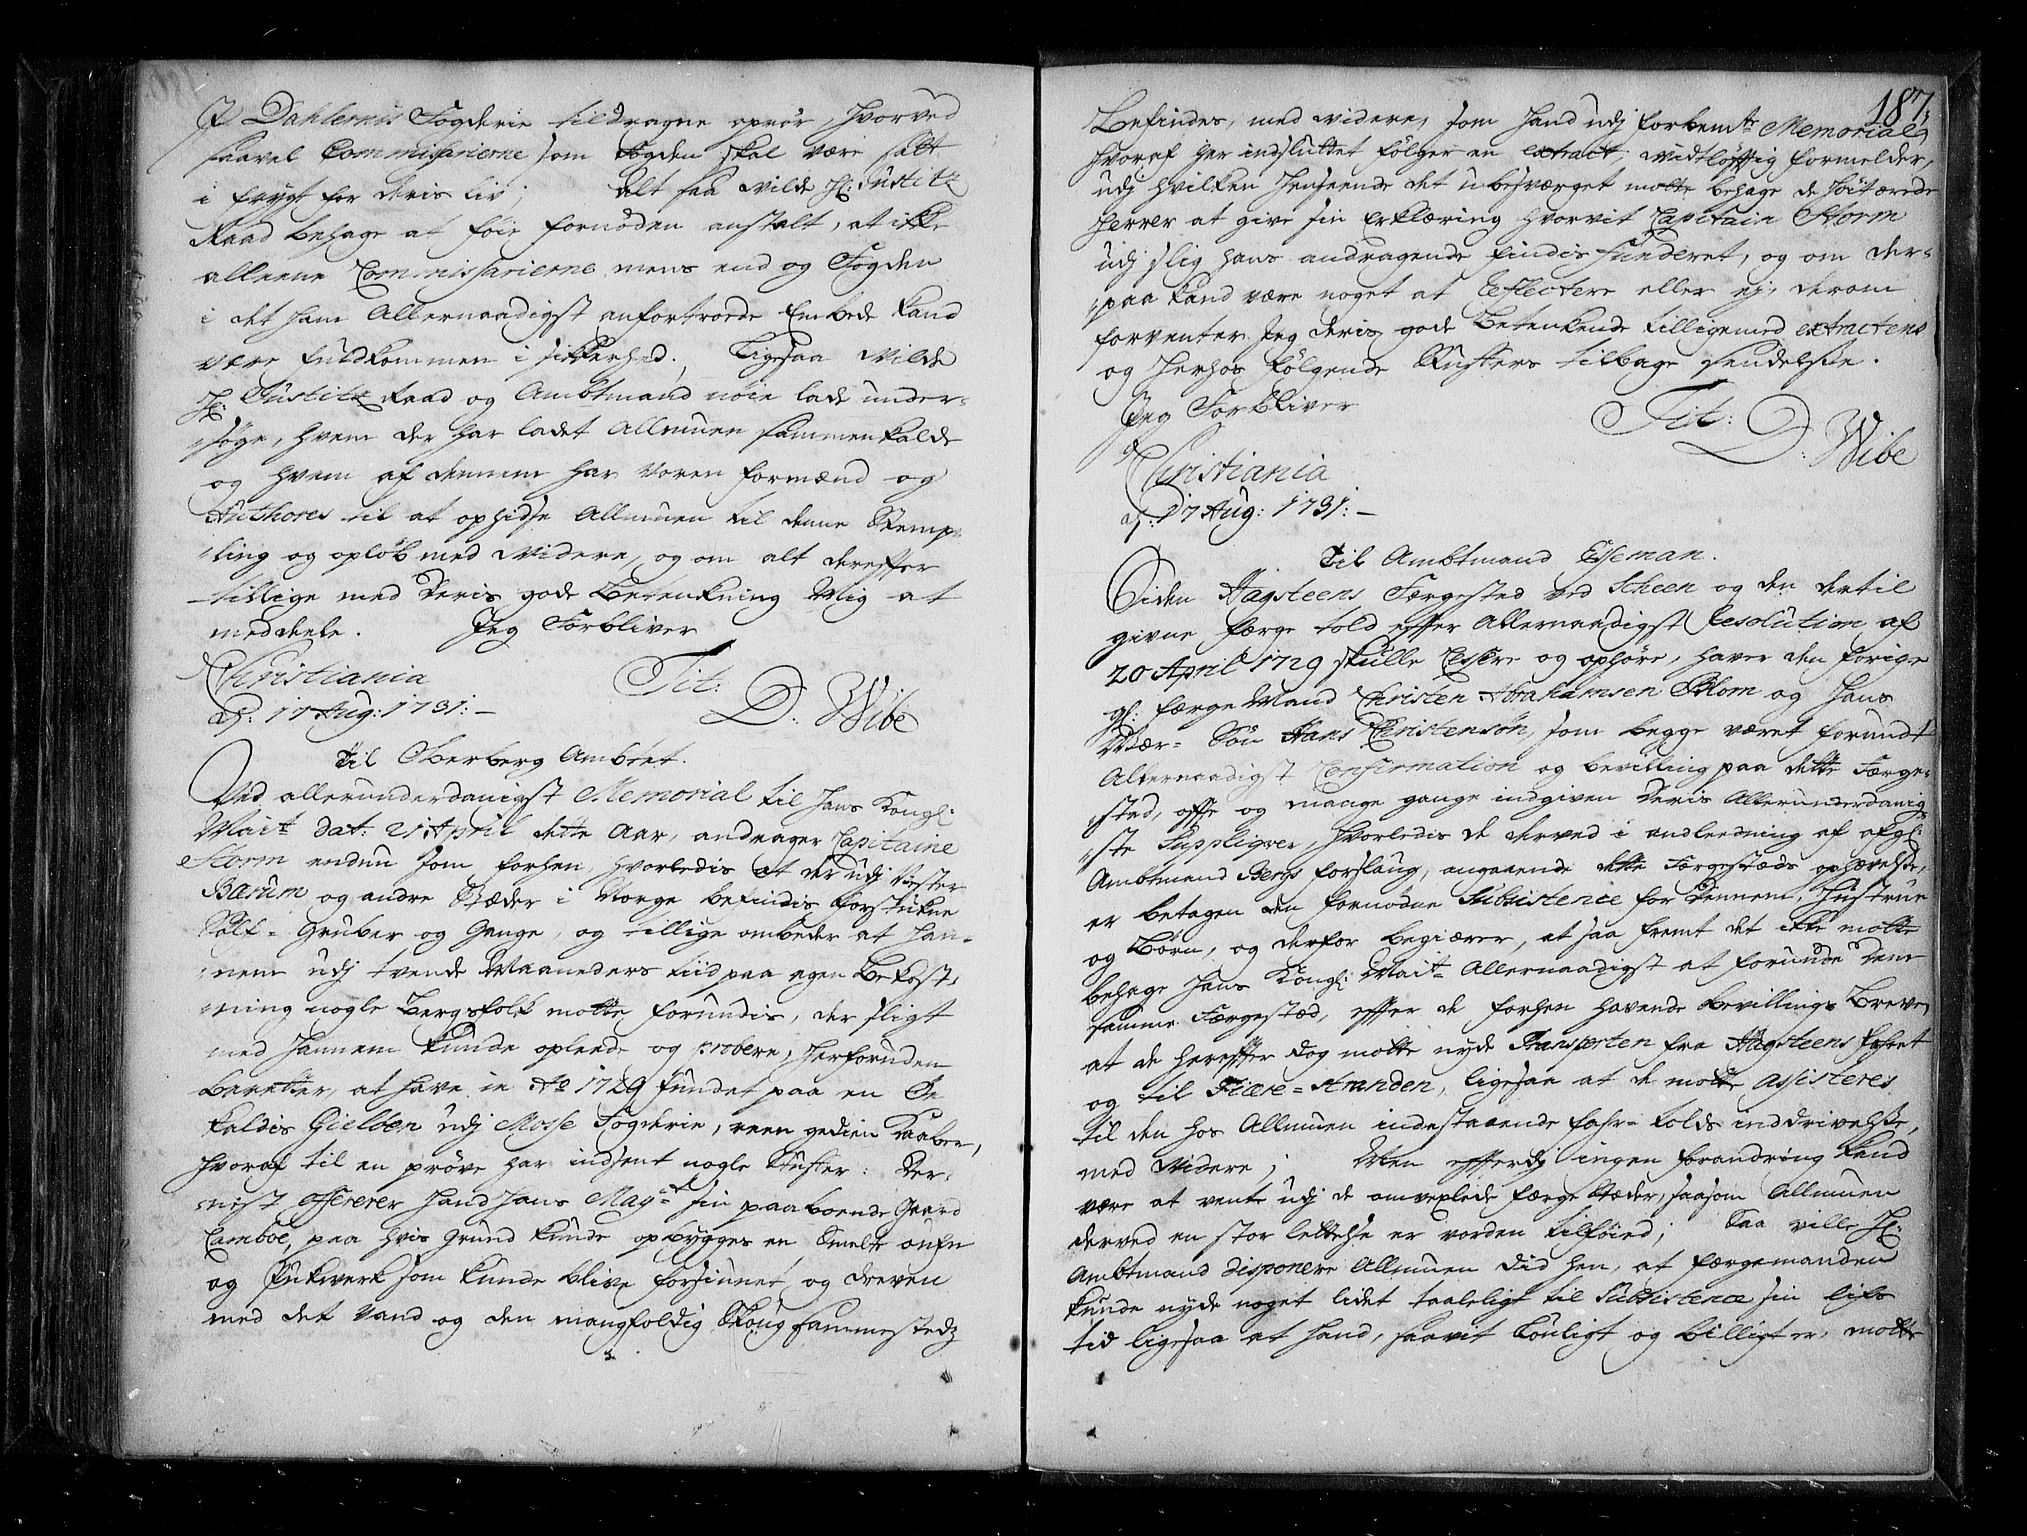 J Dahlernis Fogderie tildragne oprör, hvorved
saavel Commissarierne som Fogden skal være satt
i frygt for deris liv; alt saa wilde H: Justitz
Raad behage at föie fornöden anstalt, at ikke
alleene Commissarierne mens end og Fogden
i det ham Allernaadigst anfortroede Embede kand
være fuldkommen i sikkerhed. Ligesaa wilde
H: Justitz Raad og Ambtmand nöie lade under-
söge, hvem der har ladet Allmuen sammenkalde
og hvem af dennem har voren formænd og
Authores til at ophidse Allmuen til denne Remp-
ling og oplöb med widere, og om alt derefter
tillige med Deris gode Betenkning Mig at
meddele. Jeg Forbliver
Christiania Tit:
d: 17 Aug: 1731:— D: Wibe
Til Oberberg Ambtet.
Ved allerunderdanigst Memorial til Hans Kongl:
Maitt dat: 21 April dette Aar, andrager Capitaine
Storm endnu som forhen, hvorledis at der udj Wester
Barum og andre Stæder i Norge befindis forstukne
Sölf- Gruber og Gange, og tillige ombeder at han-
nem udj tvende Maaneders tiid paa egen Bekost-
ning nogle Bergfolk motte forundis, der sligt
med hannem kunde opleede og probere, herforuden
beretter, at have in Ao 1729 fundet paa en Öe
kaldis Gielöen udj Mosse Fogderie, reen gedien Kaaber,
hvoraf til en pröve har indsent nogle Stuffer: Der-
nest offererer hand Hans Mayt sin paaboende Gaard
Camboe, paa hvis grund kunde opbygges en Smelte oufn
og Pukwerk som kunde blive forsiunet og dreven
med det vand og den mangfoldig Skoug sammestedz
187,
Befindes, med widere, som hand udj forbemte Memorial,
hvoraf her indsluttet fölger en extract, widtlöfftig formelder,
udj hvilken Henseende det ubesværget motte behage de höitærede
Herrer at give sin Erklæring hvorvit Capitain Storm
udj slig hans andragende findis funderet, og om der-
paa kand være noget at Reflectere eller ej, derom
forventer Jeg deris gode Betenkende tilligemed extractens
og herhos fölgende Stuffers tilbage sendelse.
Jeg Forbliver Tit:
Christiania D: Wibe
d: 17 Aug: 1731:—
Til Ambtmand Esseman.
Siden Hagsteens Færgested ved Scheen og den dertil
givne færge told effter Allernaadigst Resolution af
20 April 1729 skulle Cessere og ophöre, haver den forige
gl: færge Mand Christen Abrahamsen Blom og hans
Svær- Sön Hans Christensön, som begge været forundt
Allernaadigst Confirmation og bevilling paa dette Færge-
sted, offte og mange gange indgiven deris Allerunderdanig-
ste Suppliqver, hvorledis de derved i andleedning af afgl:
Ambtmand Bergs forslaug, angaaende dette Færgestæds ophævelse,
er betagen den fornödne Subsistence for dennem, Hustrue
og Börn, og derfor begiærer, at saa fremt det ikke motte
behage Hans Kongl: Maitt Allernaadigst at forunde dem
samme Færgestæd, effter de forhen havende bevillings Breve,
at de hereffter dog motte nyde Transporten fra Hagsteens fahret
og til Fiære-Stranden, ligesaa at de motte assisteres
til den hos Allmuen indestaaende fahr- tolds inddrivelse,
med widere; Men effterdj ingen forandring kand
være at vente udj de omvexlede færge stæder, saasom Allmuen
derved en stor lettelse er vorden tilföied; Saa ville H:
Ambtmand disponere Allmuen did hen, at færgemanden
kunde nyde noget lidet taaleligt til Subsistence sin lifs
tid ligesaa at hand, saavit louligt og billigt er, motte